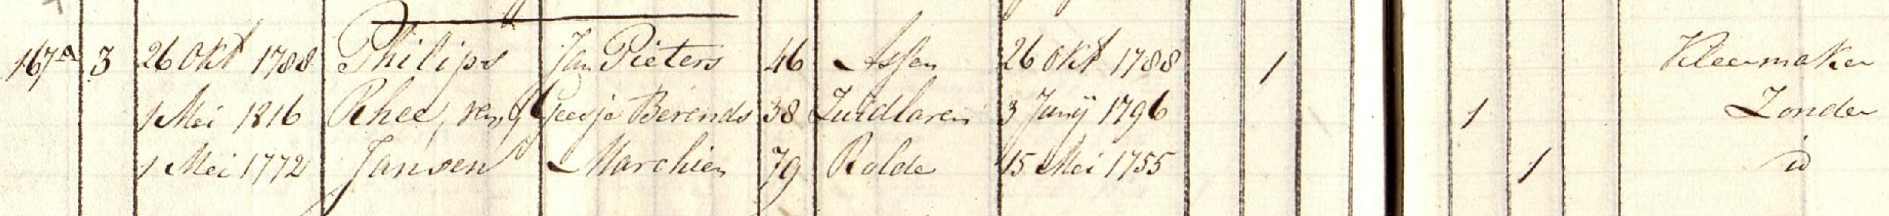 167a 3 26 Okt 1788 Philips Jan Pieters 46 Assen 26 Okt 1788 1 Kleermaker
1 Mei 1816 Rhee, van Geesje Berends 38 Zuidlaren 3 Junij 1796 1 Zonder
1 Mei 1772 Jansen Marchien 79 Rolde 15 Mei 1755 1 id